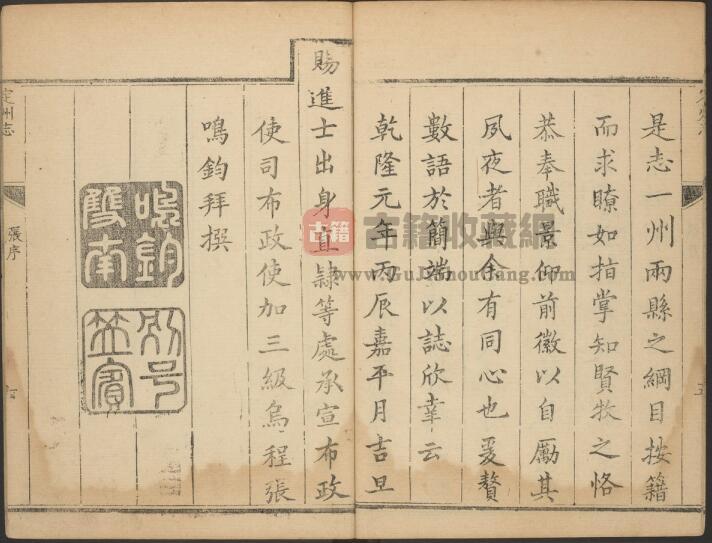 是志一州兩縣之綱目按籍
而求瞭如指掌知賢牧之恪
恭奉職景仰前徽以自勵其
夙夜者與余有同心也爰贅
數語於簡端以誌欣幸云
乾隆元年丙辰嘉平月吉旦
賜進士出身直隸等處承宣布政
使司布政使加三級烏程張
鳴鈞拜撰
鳴鈞
雙南
別号
定州志
張序
古籍
古籍收藏網
www.GuJiShouCang.com